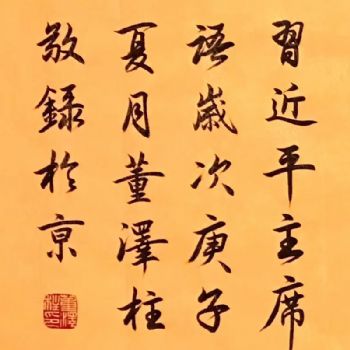 習近平主席
語歲次庚子
夏月董澤柱
敬録於京